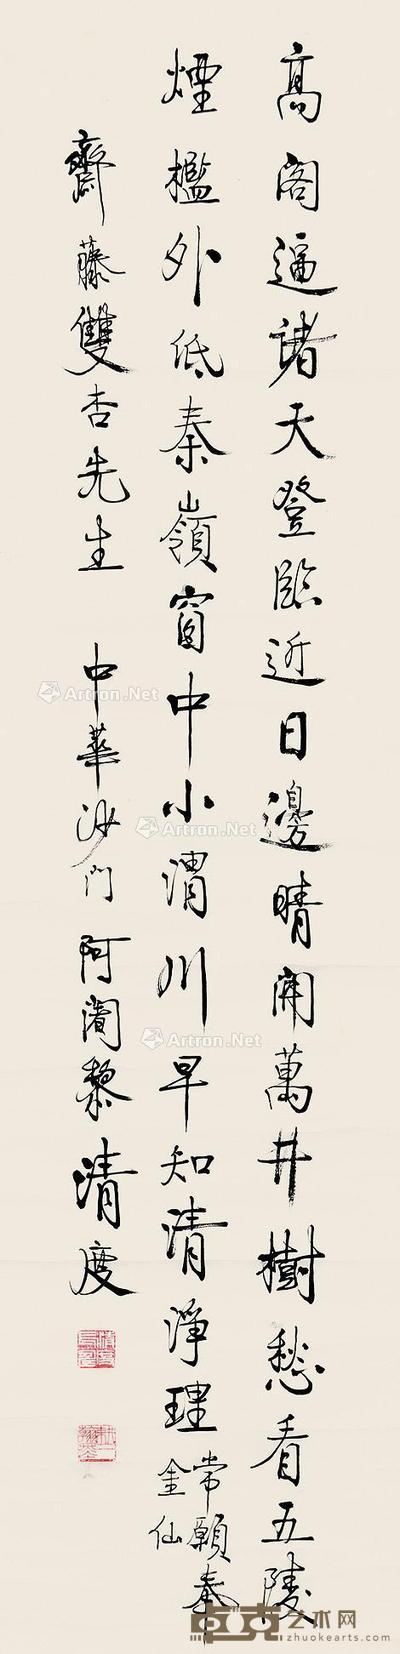 高閣逼諸天登臨近日邊晴開萬井樹愁看五陵
煙檻外低秦嶺窗中小渭川早知清淨理常願奉
金仙
齋藤雙杏先生 中華沙門阿闍黎清度
Artron.Net
Artron.Net
Artron.Net
Artron.Net
卓克艺术网
zhuokearts.com